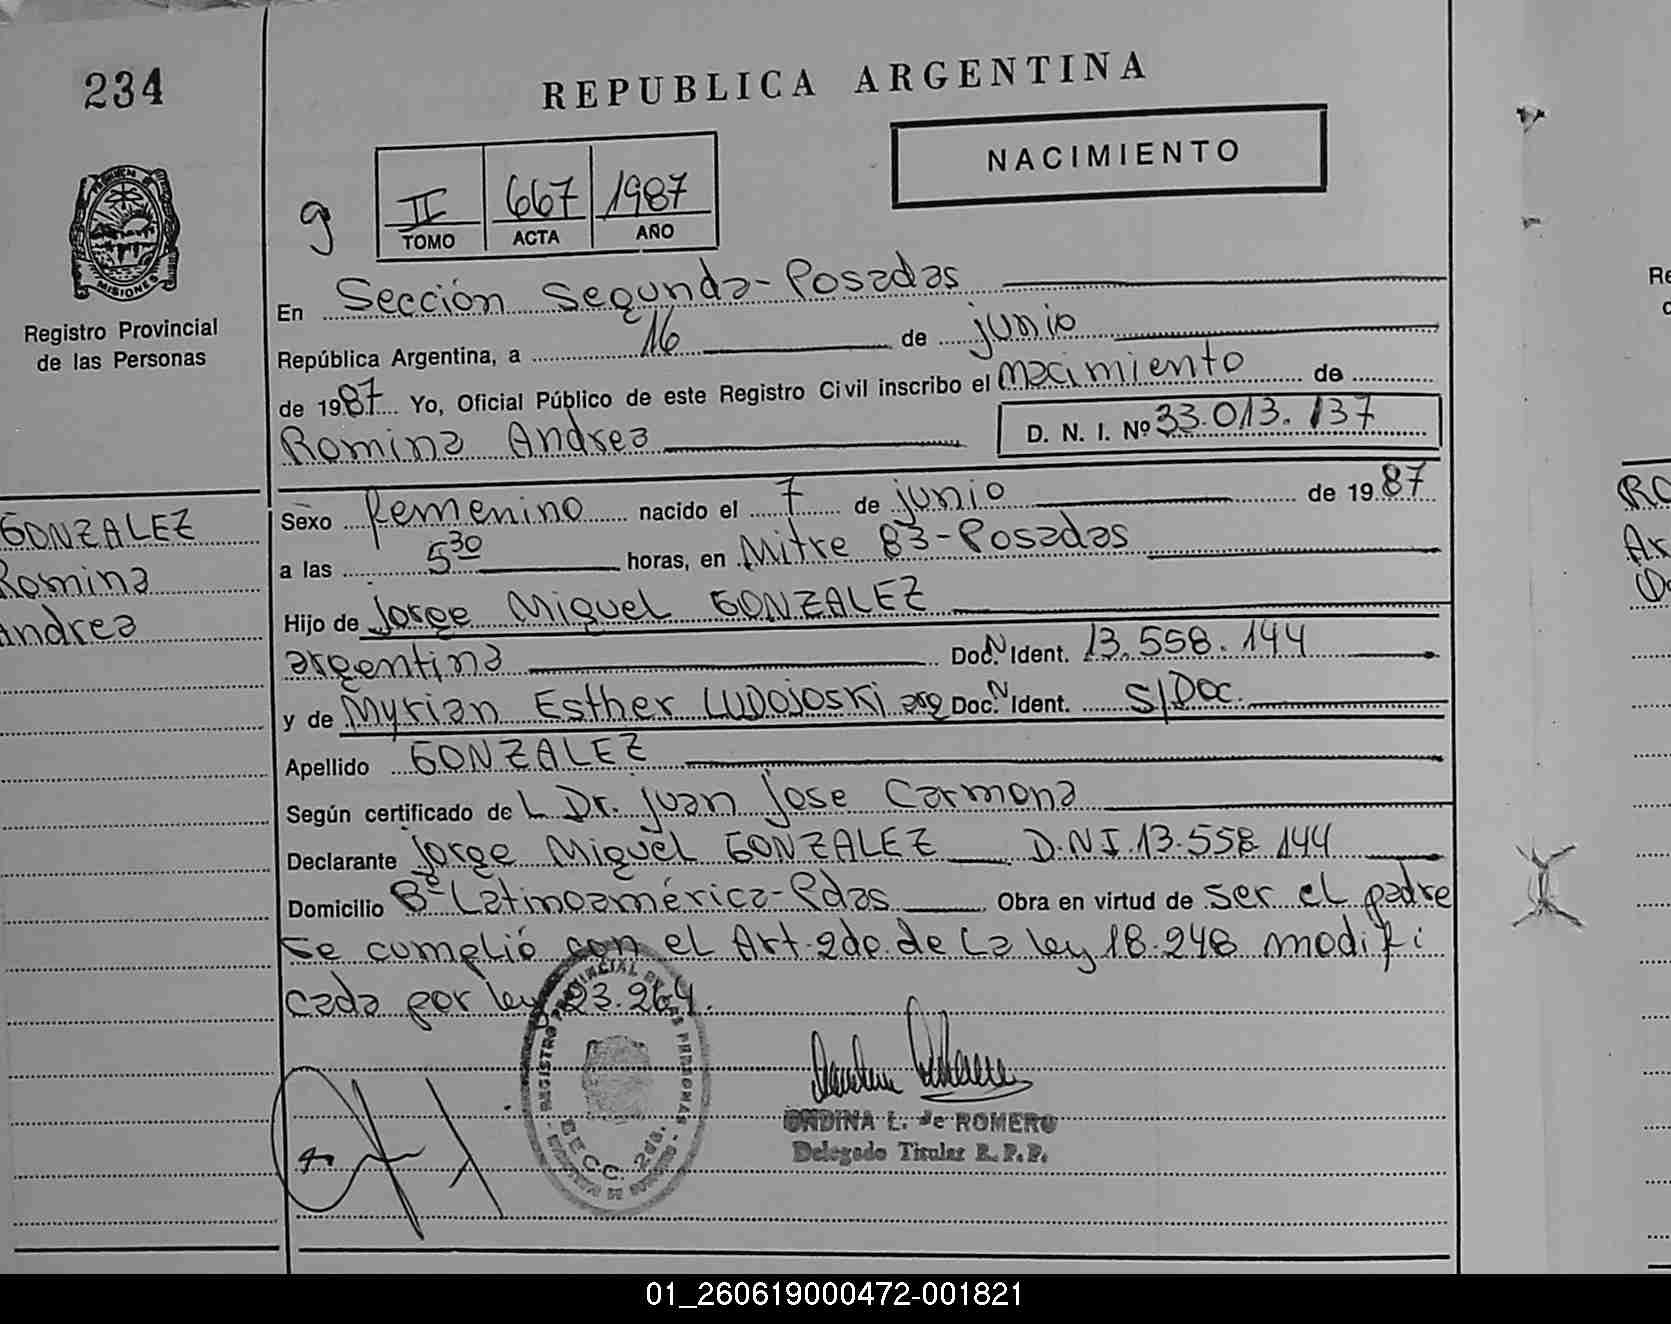 234
REPUBLICA ARGENTINA
NACIMIENTO
g
II 667 1987
TOMO ACTA AÑO
PROVINCIA DE
MISIONES
Registro Provincial
de las Personas
En Sección Segunda-Posadas
República Argentina, a 16 de junio
de 1987 Yo, Oficial Público de este Registro Civil inscribo el nacimiento de
Romina Andrea D. N. I. Nº 33.013.137
GONZALEZ
Romina
Andrea
Sexo femenino nacido el 7 de junio de 1987
a las 5 30 horas, en Mitre 83-Posadas
Hijo de Jorge Miguel GONZALEZ
argentina Doc. N Ident. 13.558.144
y de Myrian Esther LUDOJOSKI arg Doc. N Ident. S/Doc.
Apellido GONZALEZ
Según certificado de L Dr. Juan Jose Carmona
Declarante Jorge Miguel GONZALEZ D.N.I. 13.558.144
Domicilio Bº Latinoamérica-Pdas Obra en virtud de ser el padre
Se cumplió con el Art. 2do. de La Ley 18.248 modifi
cada por ley 23.264.
REGISTRO PROVINCIAL DE LAS PERSONAS
SECC. 2da.
ONDINA L. de ROMERO
Delegado Titular R. P. P.
Re
RO
Ar
01_260619000472-001821